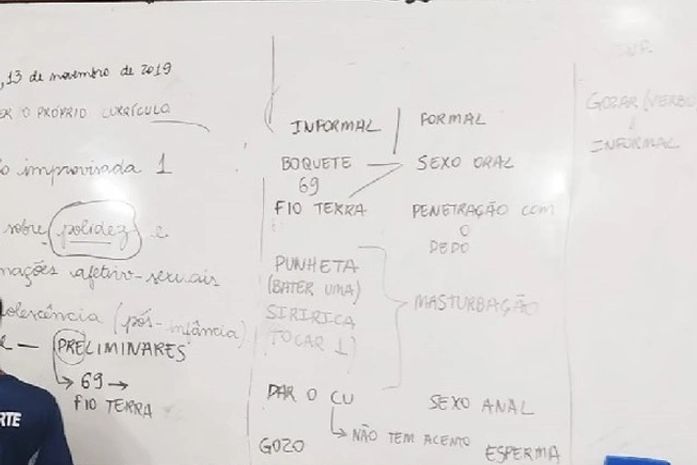 , 13 de novembro de 2019
O PRÓPRIO CURRÍCULO
improvisada 1
sobre polidez e
mações afetivo-sexuais
dolescência (pós-infância)
— PRELIMINARES
↳ 69 →
FIO TERRA
RTE
INFORMAL / FORMAL
BOQUETE — SEXO ORAL
69
FIO TERRA PENETRAÇÃO COM
O
DEDO
PUNHETA
(BATER UMA)
MASTURBAÇÃO
SIRIRICA
(TOCAR 1)
DAR O CU SEXO ANAL
↳ NÃO TEM ACENTO
GOZO ESPERMA
GOZAR (VERBO
INFORMAL